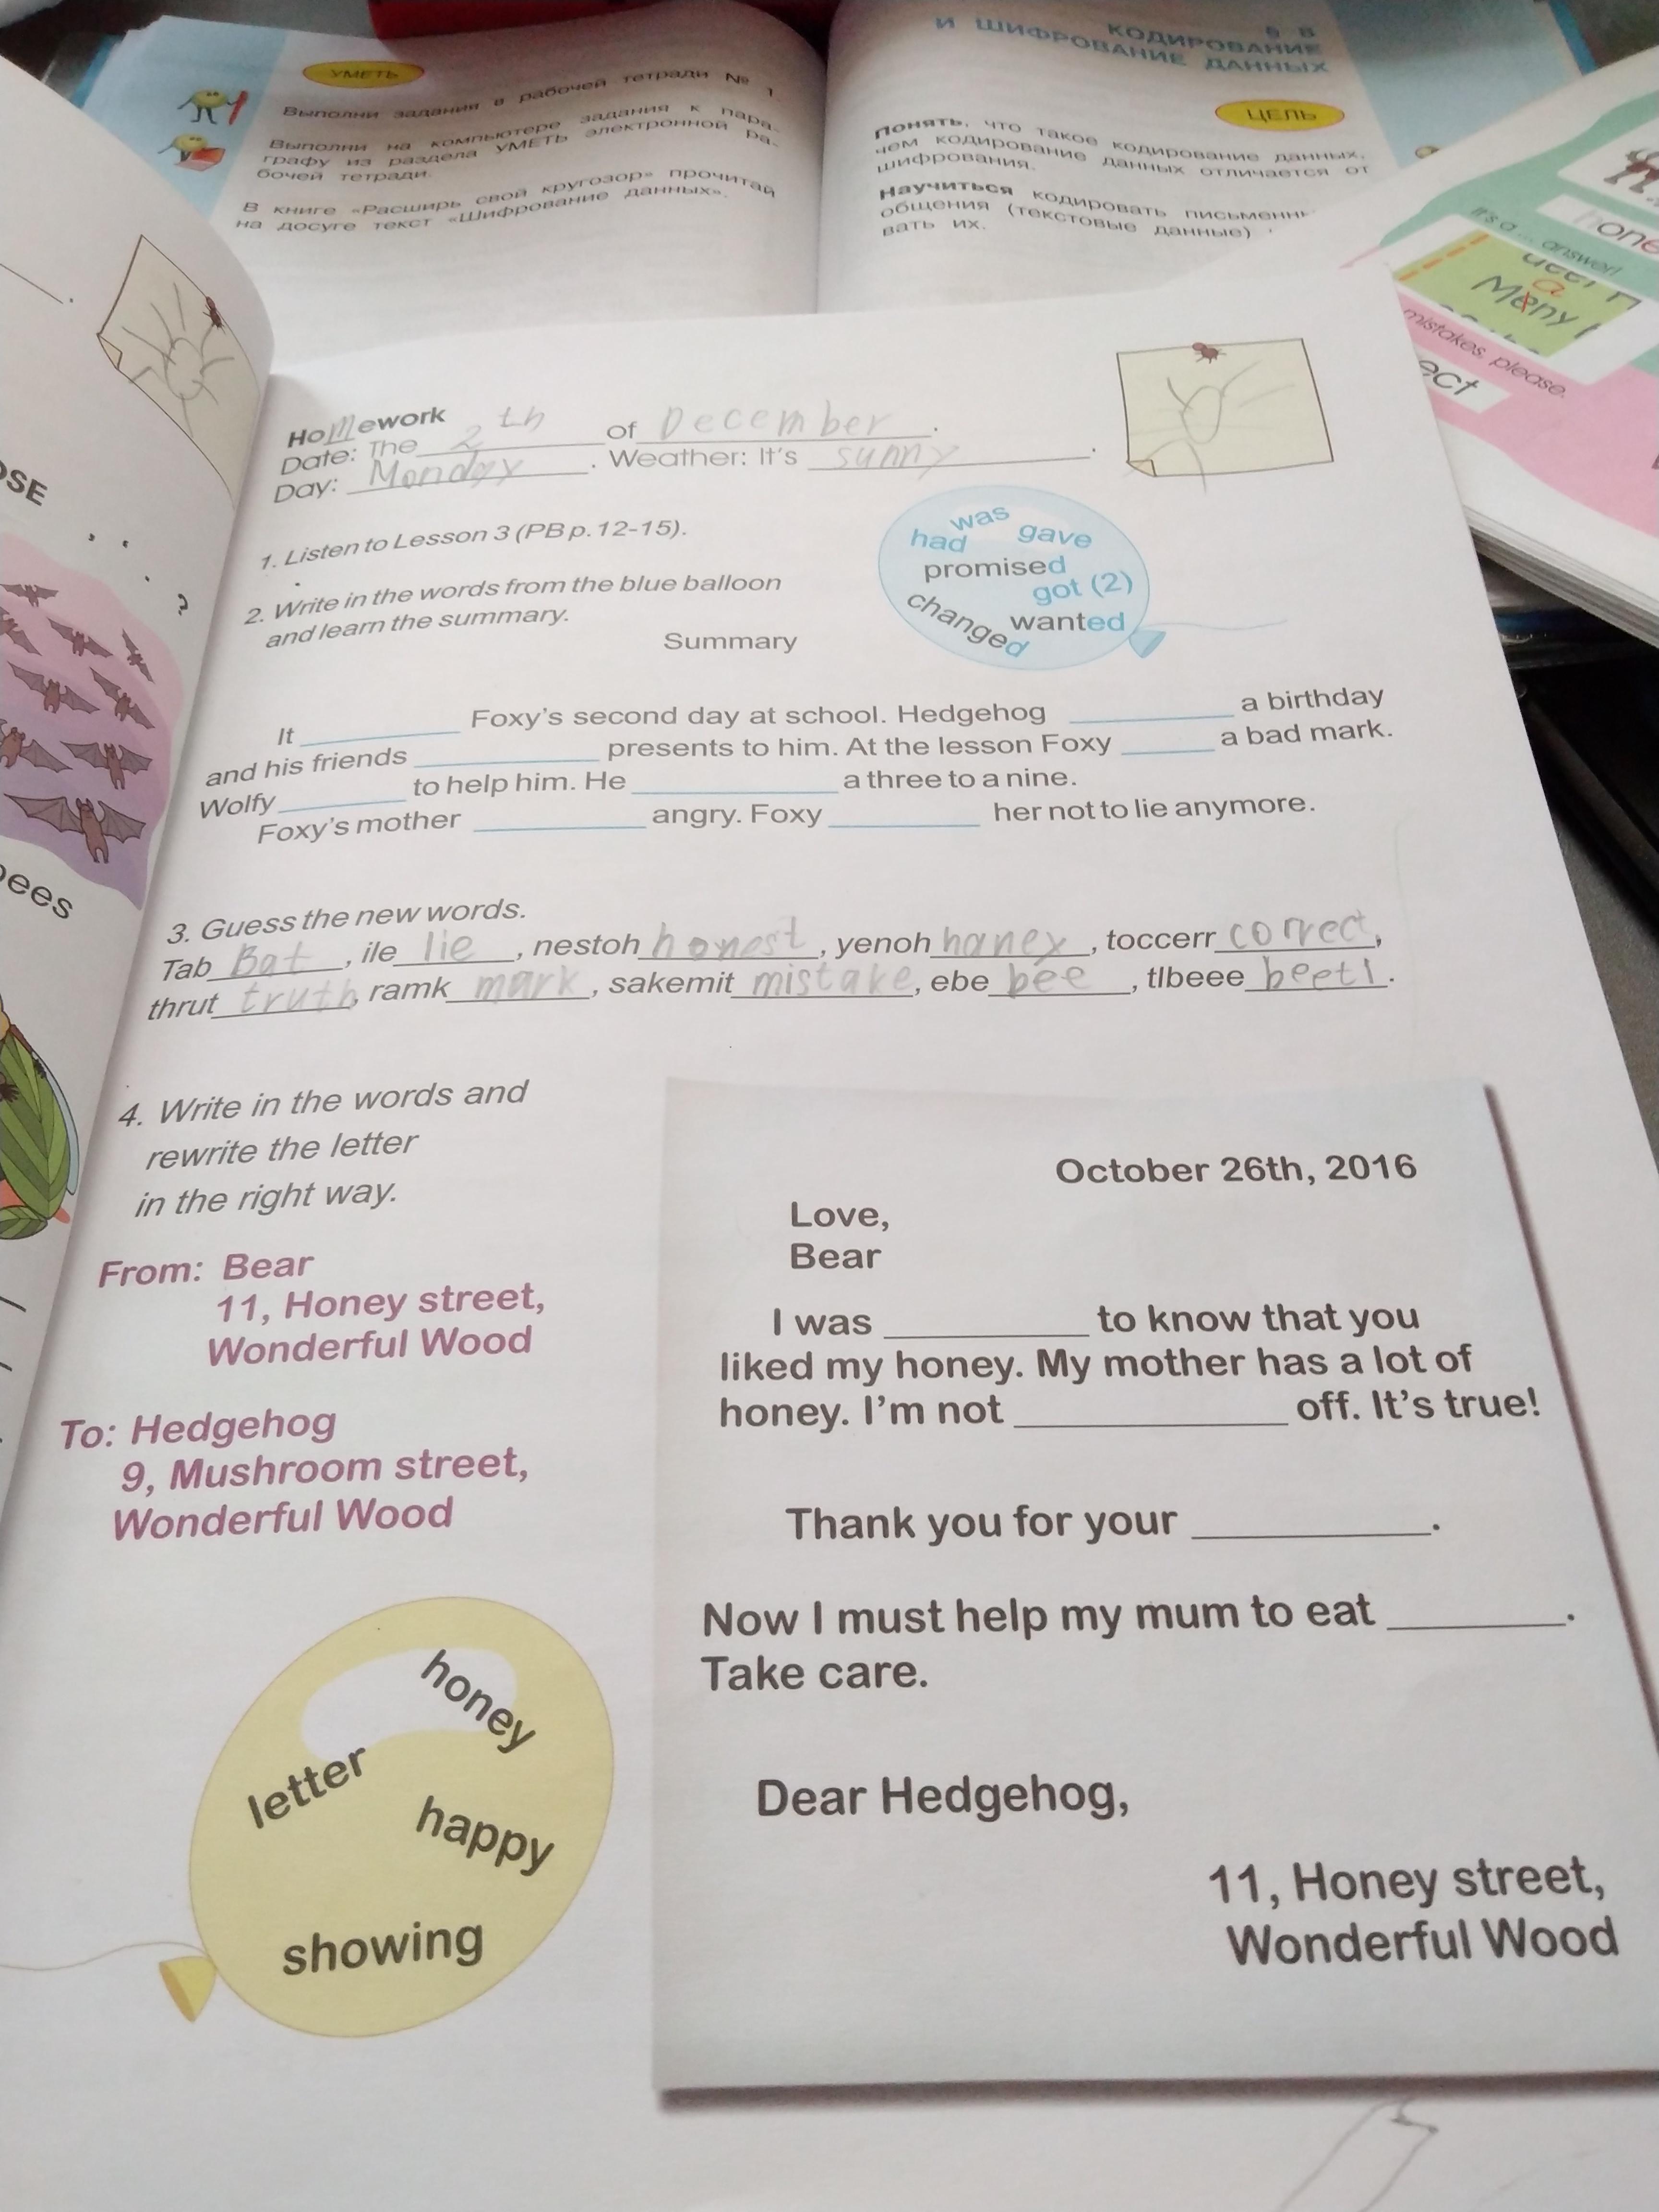 УМЕТЬ
Выполни задания в рабочей тетради № 1.
Выполни на компьютере задания к пара-
графу из раздела УМЕТЬ электронной ра-
бочей тетради.
В книге «Расширь свой кругозор» прочитай
на досуге текст «Шифрование данных».
§ 8
КОДИРОВАНИЕ
И ШИФРОВАНИЕ ДАННЫХ
ЦЕЛЬ
Понять, что такое кодирование данных,
чем кодирование данных отличается от
шифрования.
Научиться кодировать письменн
общения (текстовые данные)
вать их.
hone
It's a ... answer!
a
Meny
mistakes, please.
ect
OSE
?
bees
Homework
Date: The 2 th of December.
Day: Monday. Weather: It's sunny.
1. Listen to Lesson 3 (PB p. 12-15).
2. Write in the words from the blue balloon
and learn the summary.
was
had gave
promised
got (2)
changed
wanted
Summary
It ________ Foxy's second day at school. Hedgehog ________ a birthday
and his friends ________ presents to him. At the lesson Foxy ________ a bad mark.
Wolfy ________ to help him. He ________ a three to a nine.
Foxy's mother ________ angry. Foxy ________ her not to lie anymore.
3. Guess the new words.
Tab Bat, ile lie, nestoh honest, yenoh honey, toccerr correct,
thrut truth, ramk mark, sakemit mistake, ebe bee, tlbeee beetl.
4. Write in the words and
rewrite the letter
in the right way.
From: Bear
11, Honey street,
Wonderful Wood
To: Hedgehog
9, Mushroom street,
Wonderful Wood
honey
letter
happy
showing
October 26th, 2016
Love,
Bear
I was ________ to know that you
liked my honey. My mother has a lot of
honey. I'm not ________ off. It's true!
Thank you for your ________.
Now I must help my mum to eat ________.
Take care.
Dear Hedgehog,
11, Honey street,
Wonderful Wood